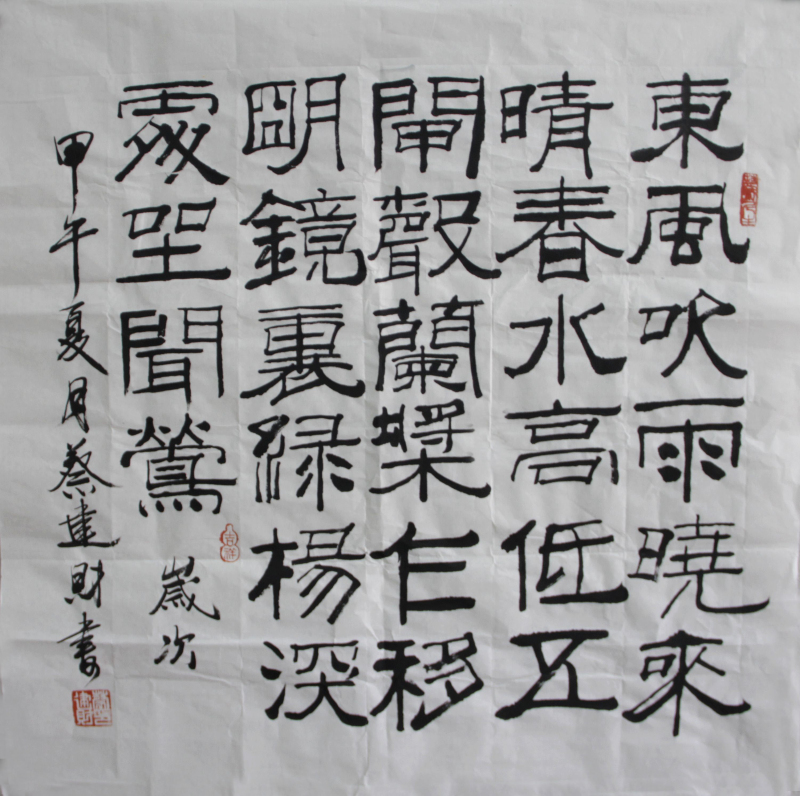 東風吹雨曉來
晴春水高低五
閘聲蘭槳乍移
朙鏡裏綠楊深
處坐聞鶯
吉祥
歲次
甲午夏月蔡建財書